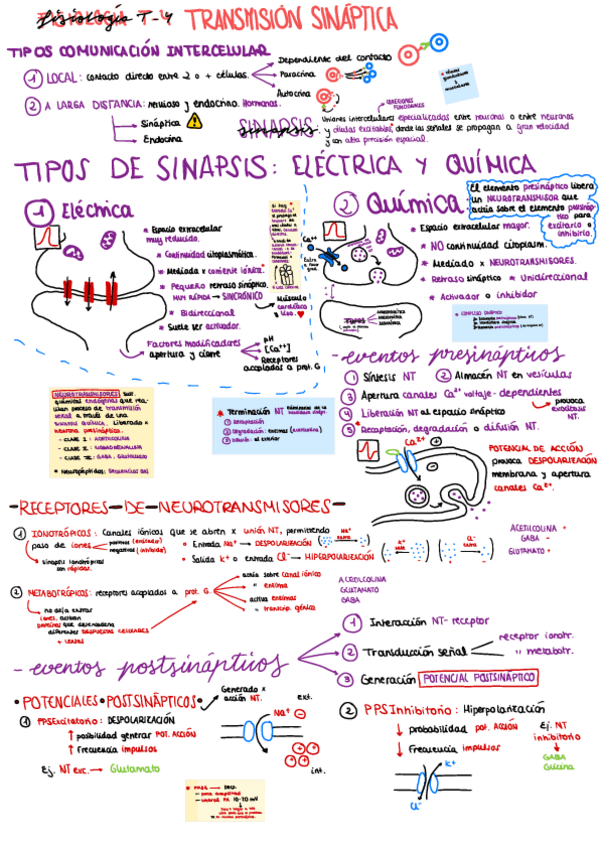 fisiología T-4 TRANSMISIÓN SINÁPTICA
TIPOS COMUNICACIÓN INTERCELULAR
1 LOCAL: contacto directo entre 2 o + células.
Dependiente del contacto
Paracrina
Autocrina
2 A LARGA DISTANCIA: nervioso y endocrino. Hormonas.
Sináptica
Endocrina
SINAPSIS
Uniones intercelulares especializadas entre neuronas o entre neuronas
y células excitables, donde las señales se propagan a gran velocidad
y con alta precisión espacial.
TIPOS DE SINAPSIS: ELÉCTRICA Y QUÍMICA
1 Eléctrica
* Espacio extracelular
muy reducido.
* Continuidad citoplasmática.
* Mediada x corriente iónica.
* Pequeño retraso sináptico.
MUY RÁPIDA → SINCRÓNICO
* Bidireccional
* Suele ser activador.
Factores modificadores
apertura y cierre
pH
[Ca²⁺]
Receptores
acoplados a prot. G.
Músculo
cardíaco
y liso.
2 Química
El elemento presináptico libera
un NEUROTRANSMISOR que
actúa sobre el elemento postsináp-
tico para
excitarlo o
inhibirlo.
Ca²⁺
* Espacio extracelular mayor.
* NO continuidad citoplasm.
* Mediado x NEUROTRANSMISORES.
* Retraso sináptico * Unidireccional
* Activador o inhibidor
NEUROTRANSMISORES
- CLASE I: ACETILCOLINA
* Terminación NT
1 Recaptación
- eventos presinápticos
1 Síntesis NT 2 Almacén NT en vesículas
3 Apertura canales Ca²⁺ voltaje-dependientes
4 Liberación NT al espacio sináptico
provoca
exocitosis
NT.
5 * Recaptación, degradación o difusión NT.
Ca²⁺
POTENCIAL DE ACCIÓN
provoca DESPOLARIZACIÓN
membrana y apertura
canales Ca²⁺.
-RECEPTORES-DE-NEUROTRANSMISORES-
1 IONOTRÓPICOS: Canales iónicos que se abren x unión NT, permitiendo
paso de iones
positivos (excitado)
negativos (inhibida)
sinapsis ionotrópicas
son rápidas.
• Entrada Na⁺ → DESPOLARIZACIÓN
• Salida K⁺ o entrada Cl⁻ → HIPERPOLARIZACIÓN
Na⁺
entra
K⁺
sale
Cl⁻
entra
ACETILCOLINA
GABA
GLUTAMATO
2 METABOTRÓPICOS: receptores acoplados a prot. G.
actúa sobre canal iónico
" " enzima
activa enzimas
" transcrip. génica
no deja entrar
iones, activan
proteínas que desencadena
diferentes RESPUESTAS CELULARES
+ LENTAS
ACETILCOLINA
GLUTAMATO
GABA
- eventos postsinápticos
1 Interacción NT-receptor
2 Transducción señal
receptor ionotr.
" metabotr.
3 Generación POTENCIAL POSTSINÁPTICO
• POTENCIALES • POSTSINÁPTICOS •
Generado x
acción NT.
1 PPSExcitatorio: DESPOLARIZACIÓN
↑ posibilidad generar POT. ACCIÓN
↑ Frecuencia impulsos
Ej. NT exc. → Glutamato
ext.
Na⁺
int.
2 PPSInhibitorio: Hiperpolarización
↓ probabilidad pot. ACCIÓN
↓ Frecuencia impulsos
Ej. NT
inhibitorio
GABA
Glicina
K⁺
Cl⁻